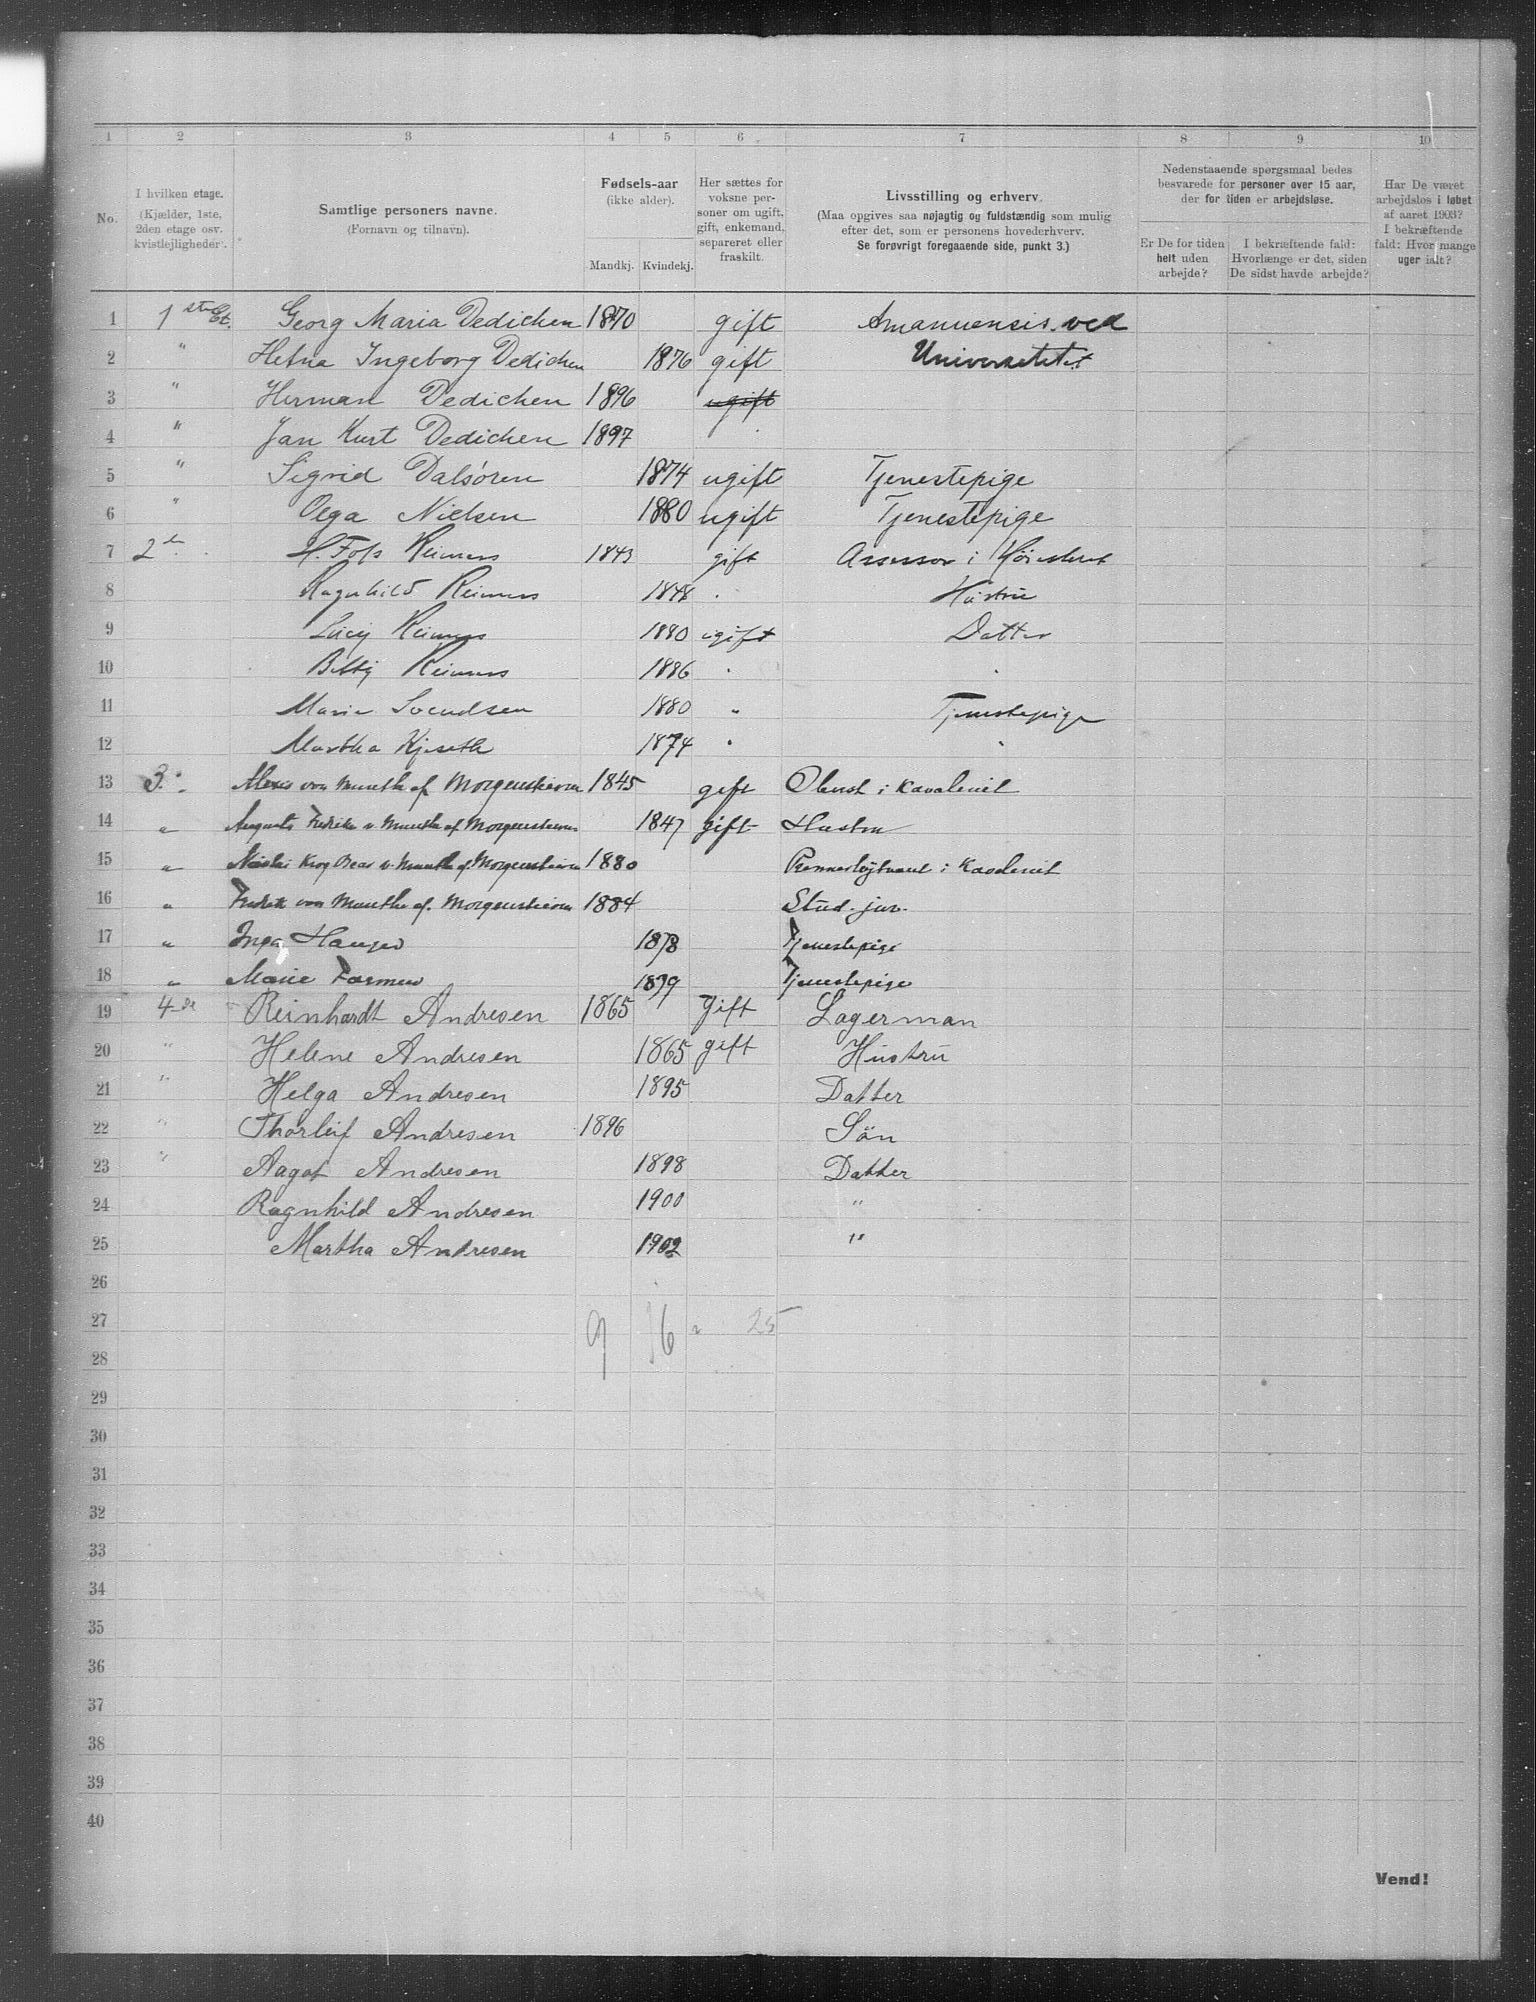 1 2 3 4 5 6 7 8 9 10
No.
I hvilken etage.
(Kjælder, 1ste,
2den etage osv.
kvistlejligheder).
Samtlige personers navne.
(Fornavn og tilnavn).
Fødsels-aar
(ikke alder).
Mandkj. Kvindekj.
Her sættes for
voksne per-
soner om ugift,
gift, enkemand,
separeret eller
fraskilt.
Livsstilling og erhverv.
(Maa opgives saa nøjagtig og fuldstændig som mulig
efter det, som er personens hovederhverv.
Se forøvrigt foregaaende side, punkt 3.)
Nedenstaaende spørgsmaal bedes
besvarede for personer over 15 aar,
der for tiden er arbejdsløse.
Er De for tiden
helt uden
arbejde?
I bekræftende fald:
Hvorlænge er det, siden
De sidst havde arbejde?
Har De været
arbejdsløs i løbet
af aaret 1903?
I bekræftende
fald: Hvor mange
uger ialt?
1 1ste Et. Georg Maria Dedichen 1870 gift Amanuensis ved
2 " Helna Ingeborg Dedichen 1876 gift Universitetet
3 " Herman Dedichen 1896 ugift
4 " Jan Kurt Dedichen 1897
5 " Sigrid Dalsøren 1874 ugift Tjenestepige
6 " Olga Nielsen 1880 ugift Tjenestepige
7 2 H. Reimers 1843 gift Assessor i Høiesteret
8 Ragnhild Reimers 1848 " Hustru
9 Lucy Reimers 1880 ugift Datter
10 Betty Reimers 1886 " "
11 Marie Svendsen 1880 " Tjenestepige
12 Martha Kjseth 1874 " "
13 3. Alexis von Munthe af Morgenstierne 1845 gift Oberst i Kavaleriet
14 " Augusta Fredrikke v Munthe af Morgenstierne 1847 gift Hustru
15 " Nicolai Krog Bear v. Munthe af Morgenstierne 1880 Premierløjtnant i Kavaleriet
16 " Fredrik von Munthe af Morgenstierne 1884 Stud. jur.
17 " Inga 1878 Tjenestepige
18 " Marie 1879 Tjenestepige
19 4de Reinhardt Andresen 1865 gift Lagerman
20 " Helene Andresen 1865 gift Hustru
21 " Helga Andresen 1895 Datter
22 " Thorleif Andresen 1896 Søn
23 " Aagot Andresen 1898 Datter
24 Ragnhild Andresen 1900 "
25 Martha Andresen 1902 "
26
27 9 16 = 25
28
29
30
31
32
33
34
35
36
37
38
39
40
Vend!